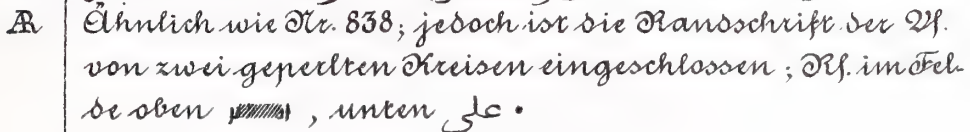 AR Ähnlich wie Nr. 838; jedoch ist die Randschrift der Vf.
von zwei geperlten Kreisen eingeschlossen; Rf. im Fel-
de oben , unten على .